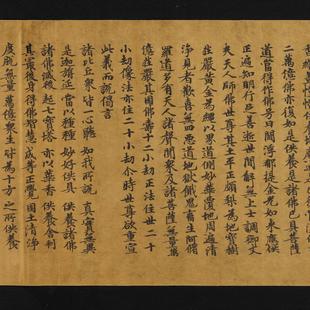 二萬億佛亦復如是供養是諸佛已具菩薩
道當得作佛号曰閻浮那提金光如来應供
正遍知明行足善逝世間解無上士調御丈
夫天人師佛世尊其土平正頗梨為地寶樹
莊嚴黄金為繩以界道側妙華覆地周遍清
淨見者歡喜無四惡道地獄餓鬼畜生阿脩
羅道多有天人諸聲聞衆及諸菩薩無量萬
億莊嚴其國佛壽十二小劫正法住世二十
小劫像法亦住二十小劫尒時世尊欲重宣
此義而說偈言
諸比丘衆 皆一心聽 如我所說 真實無異
是迦旃延 當以種種 妙好供具 供養諸佛
諸佛滅後 起七寶塔 亦以華香 供養舍利
其最後身 得佛智慧 成等正覺 國土清淨
度脫無量 萬億衆生 皆為十方 之所供養